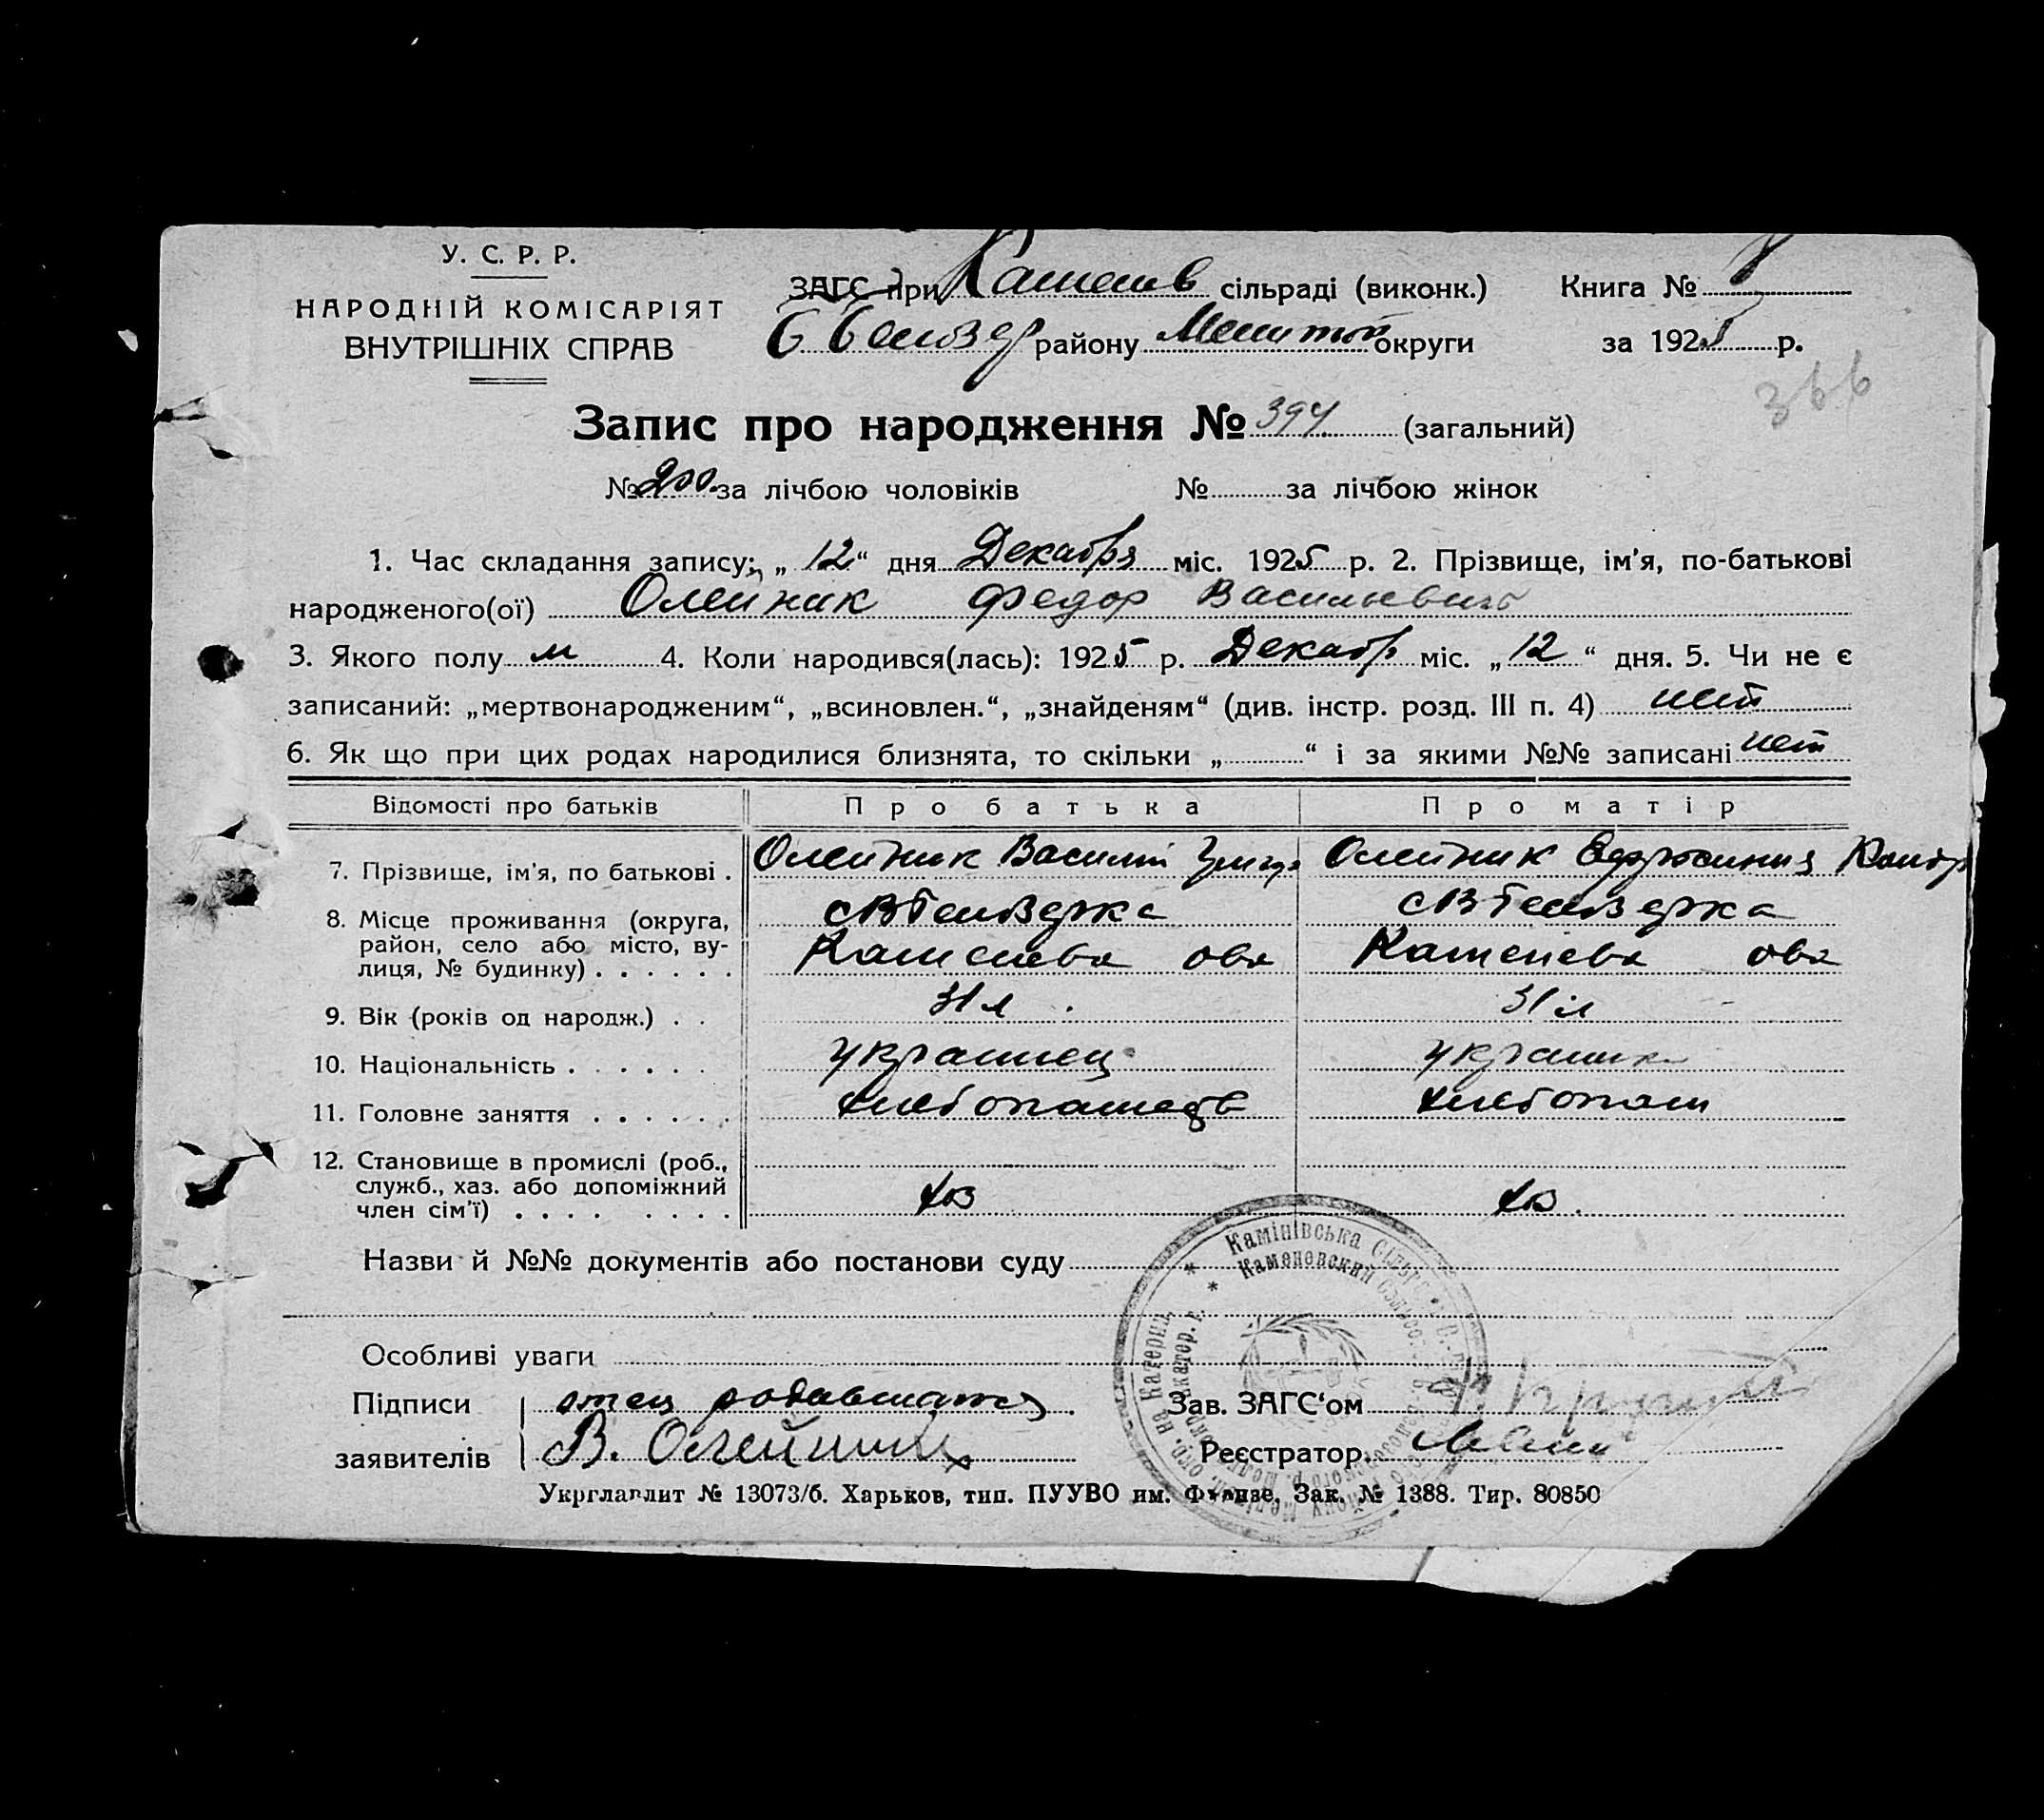 У. С. Р. Р.
НАРОДНІЙ КОМІСАРІЯТ
ВНУТРІШНІХ СПРАВ
ЗАГС при Каменів сільраді (виконк.)
району Мелитоп округи
Книга №
за 1925 р.
366
Запис про народження № 394 (загальний)
№ 200 за лічбою чоловіків № за лічбою жінок
1. Час складання запису: „ 12 “ дня Декабря міс. 1925 р. 2. Прізвище, ім'я, по-батькові
народженого(ої) Олейник Федор Васильевичъ
3. Якого полу м 4. Коли народився(лась): 1925 р. Декабр міс. „ 12 “ дня. 5. Чи не є
записаний: „мертвонародженим“, „всиновлен.“, „знайденям“ (див. інстр. розд. III п. 4) нет
6. Як що при цих родах народилися близнята, то скільки „ “ і за якими №№ записані нет
Відомості про батьків Про батька Про матір
7. Прізвище, ім'я, по батькові . Олейник Василий Григор Олейник Ефросиния Кондр
8. Місце проживання (округа,
район, село або місто, ву-
лиця, № будинку) . . . . . .
9. Вік (років од народж.) . . 31 л . 31 л
10. Національність . . . . . . украинец украинк
11. Головне заняття . . . . . . хлебопашецъ хлебопаш
12. Становище в промислі (роб.,
служб., хаз. або допоміжний
член сім'ї) . . . . . . . . хоз хоз .
Назви й №№ документів або постанови суду
Особливі уваги
Підписи отец родавшагося Зав. ЗАГС'ом
заявителів В. Олейник Реєстратор.
Камінівська
Каменовский
Укрглавлит № 13073/б. Харьков, тип. ПУУВО им. Фрунзе, Зак. № 1388. Тир. 80850